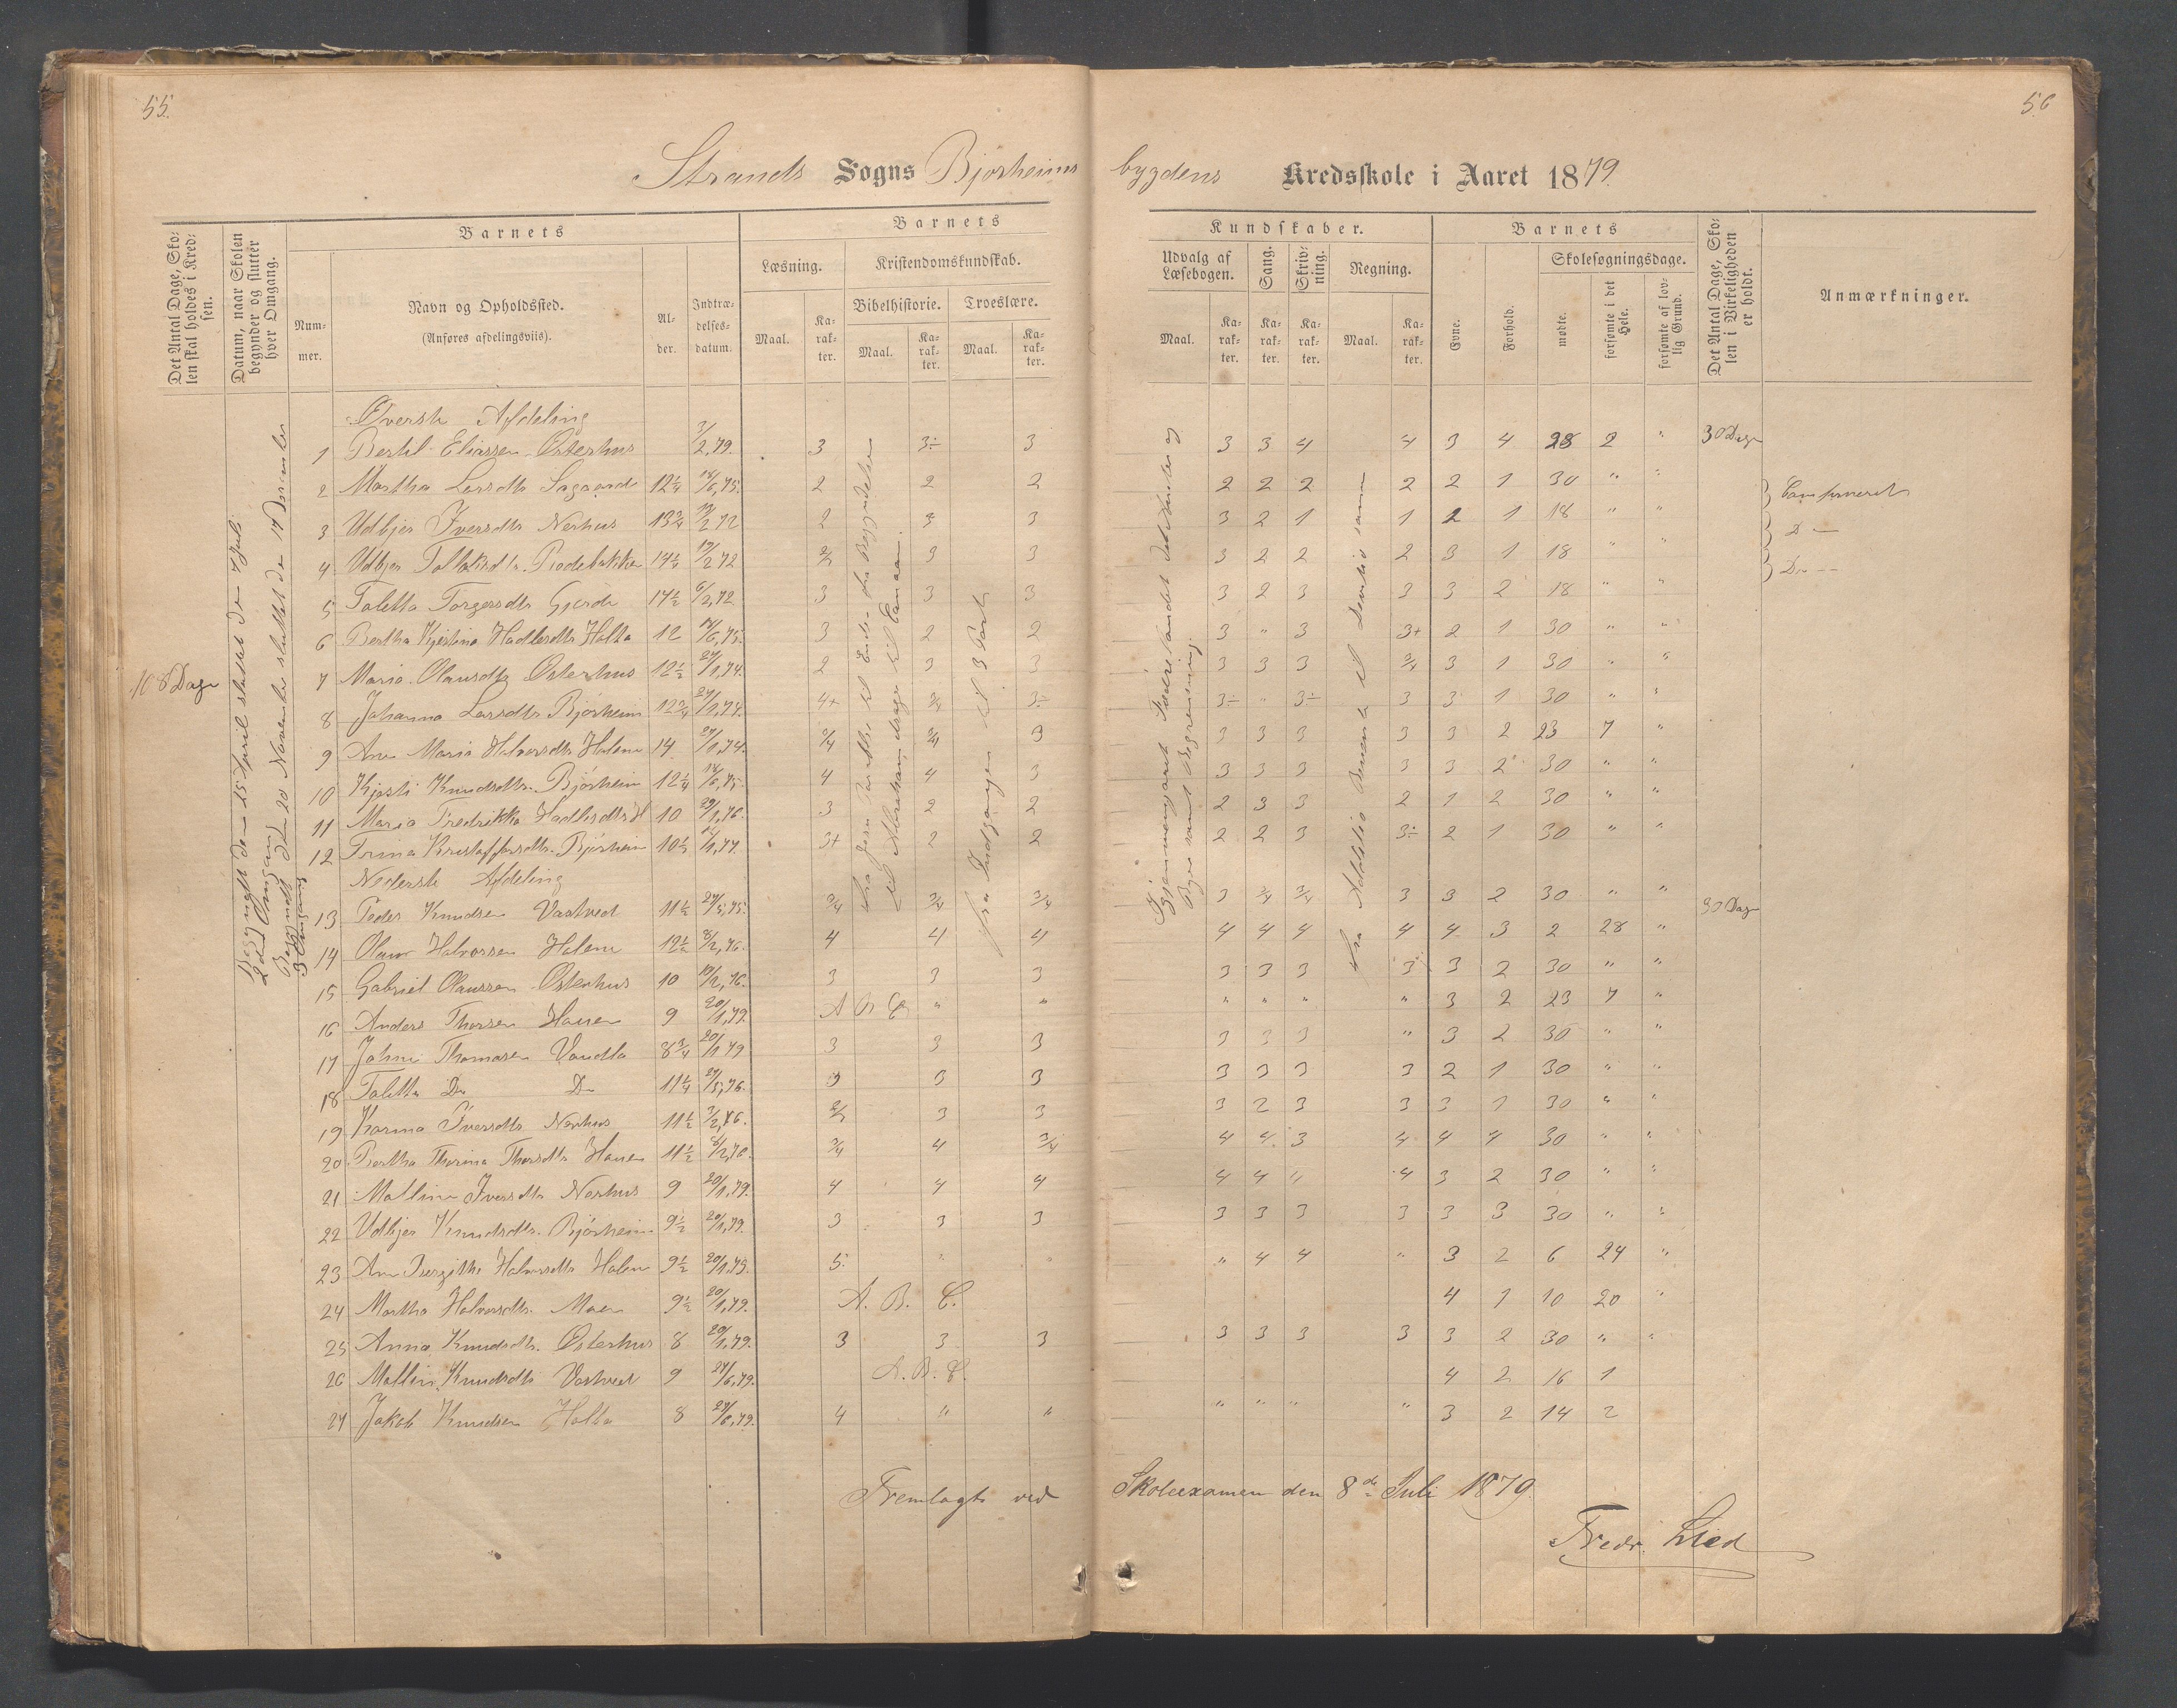 55.
56
Strands Sogns Bjørheims bygdens Kredsskole i Aaret 1879.
Det Antal Dage, Skolen skal holdes i Kredsen.
Datum, naar Skolen begynder og slutter hver Omgang.
Barnets
Nummer.
Navn og Opholdssted.
(Anføres afdelingsviis).
Alder.
Indtrædelsesdatum.
Barnets
Læsning.
Kristendomskundskab.
Bibelhistorie.
Troeslære.
Maal.
Karakter.
Maal.
Karakter.
Maal.
Karakter.
Kundskaber.
Udvalg af Læsebogen.
Sang.
Skrivning.
Regning.
Maal.
Karakter.
Karakter.
Karakter.
Maal.
Karakter.
Barnets
Evne.
Forhold.
Skolesøgningsdage.
mødte.
forsømte i det Hele.
forsømte af lovlig Grund.
Det Antal Dage, Skolen i Virkeligheden er holdt.
Anmærkninger.
108 Dage
Begyndt den 15 April sluttet den 7 Juli
2den Omgang
Begyndt den 20 November sluttet den 17 December
3 Omgang
Øverste Afdeling
1 Bertil Eliassen Østerhus 3/2,79. 3 3÷ 3 3 3 4 4 3 4 28 2 " 30 Dage
2 Martha Larsdtr. 12 1/4 18/6,75. 2 2 2 2 2 2 2 2 1 30 " " Confirmeret
3 Udbjør Iversdtr Nerhus 13 3/4 19/2 72 2 3 3 3 2 1 1 2 1 18 " " D—
4 Udbjør 14 1/4 19/2 72 2/3 3 3 3 2 2 2 3 1 18 " " Do—
5 Taletta Torgersdtr Gjerde 14 1/2 6/2,72 3 3 3 3 2 3 3 3 2 18 " "
6 Bertha Kjestina Hadlesdtr Holta 12 18/6,75. 3 2 2 3 " 3 3+ 2 1 30 " "
7 Maria Olausdtr Østerhus 12 1/2 27/1,74. 2 3 3 3 3 3 3/4 3 1 30 " "
8 Johanna Larsdtr Bjørheim 12 3/4 27/1,74. 4+ 3/4 3÷ 3÷ " 3÷ 3 3 1 30 " "
9 Ane Maria Halvorsdtr Holane 14 27/1,74. 3/4 3/4 3 3 3 3 3 3 2 23 7 "
10 Kjesti Knudsdtr. Bjørheim 12 1/4 18/6,75. 4 4 3 3 3 3 3 3 2 30 " "
11 Maria Fredrikka Hadlesdtr H 10 29/1,76. 3 2 2 2 3 3 2 1 2 30 " "
12 Trina Kristoffersdtr. Bjørheim 10 1/2 3+ 2 2 2 2 3 3÷ 2 1 30 " "
Nederste Afdeling
13 Peder Knudsen Vastveit 11 1/2 27/5,75. 3/4 3/4 3/4 3 3/4 3/4 3 3 2 30 " " 30 Dage
14 Olaus Halvorsen Holane 12 1/2 8/2,76. 4 4 4 4 4 4 4 4 3 2 28 "
15 Gabriel Olaussen Østerhus 10 19/2,76. 3 3 3 3 3 3 3 3 2 30 " "
16 Anders Thorsen Hauen 9 20/1,79. A B C " " " " " " 3 2 23 7 "
17 Johne Thomasen Vaudla 8 3/4 20/1 79 3 3 3 3 3 3 " 3 2 30 " "
18 Taletta Do Do 11 1/4 27/5,76. 3 3 3 3 3 3 3 2 1 30 " "
19 Karina Iversdtr Nerhus 11 1/2 3/2,76. 2/3 3 3 3 2 3 3 3 1 30 " "
20 Bertha Thorina Thorsdtr Hauen 11 1/2 8/2,76. 3/4 4 3/4 4 4 3 4 4 4 30 " "
21 Malline Iversdtr Nerhus 9 20/1,79. 4 4 4 4 4 " 4 3 2 30 " "
22 Udbjør Knudsdtr. Bjørheim 9 1/2 20/1,79. 3 3 3 3 3 3 3 3 3 30 " "
23 Ane Birgithe Halvorsdtr Holane 9 1/2 20/1,79. 5. " " " 4 4 " 3 2 6 24 "
24 Martha Halvorsdtr. Moen 9 1/2 20/1,79. A. B. C. 4 1 10 20 "
25 Anna Knudsdtr. Østerhus 8 20/1,79. 3 3 3 3 3 3 3 3 2 30 " "
26 Malline Knudsdtr Vastveit 9 27/6,79. A. B. C. 4 2 16 1
27 Jakob Knudsen Holta 8 27/6,79. 4 " " " " " " 3 2 14 2
til Abrahams drager til Canaan.
Fra Indgangen til 3 Part
Gjennemgaaet Fædrelandet dets
Byer samt Begrænsning.
Fra Addition Benevnte til
Fremlagt ved Skoleexamen den 8de Juli 1879.
Fredr. Lied